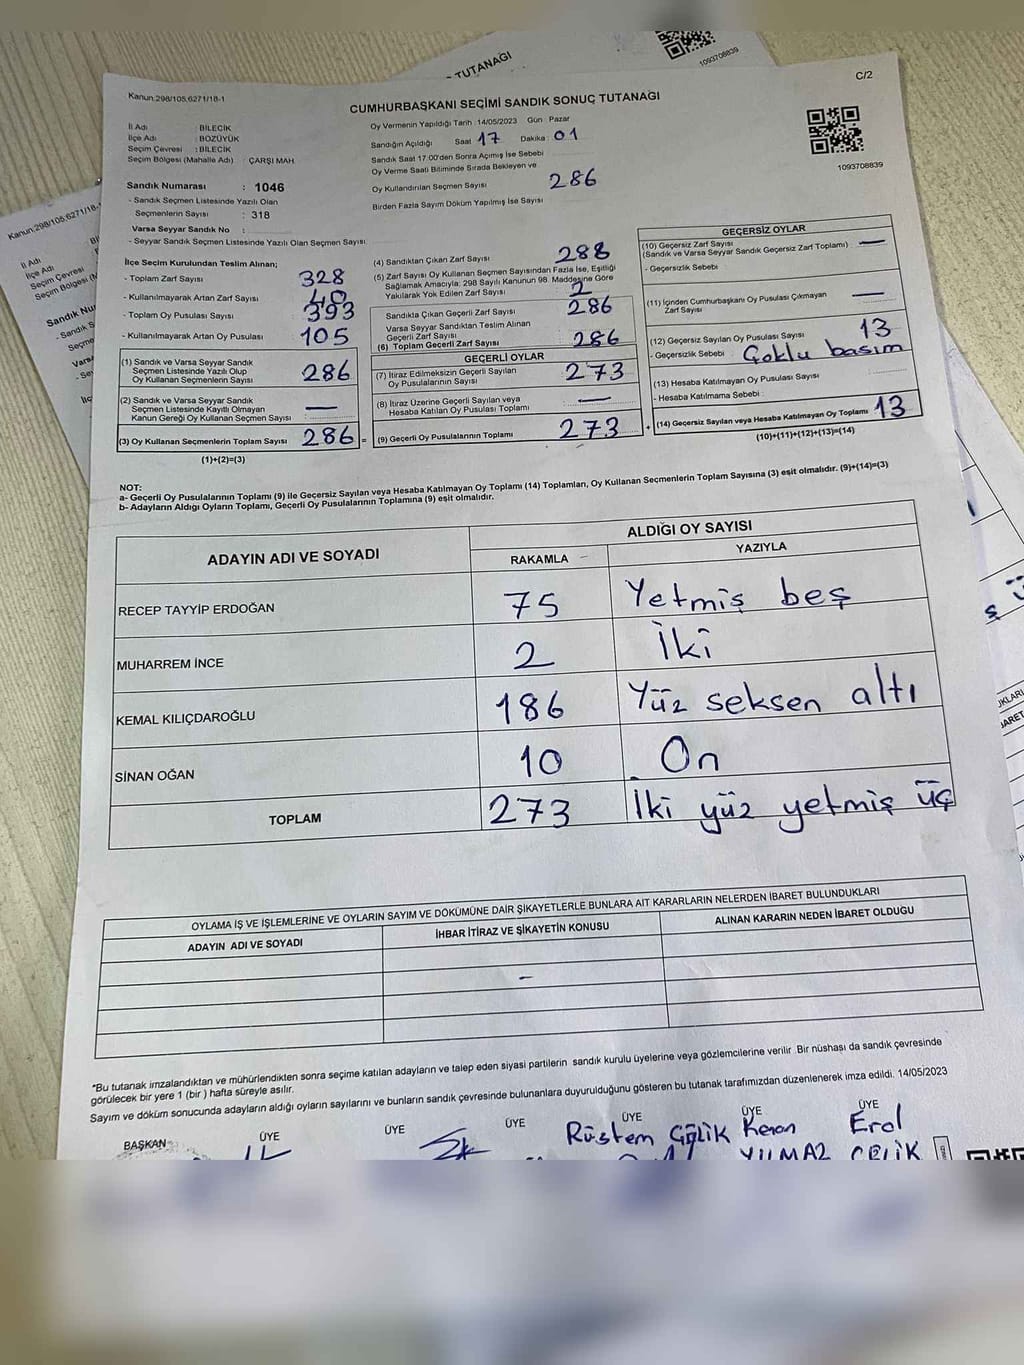 TUTANAĞI
1093708839
Kanun:298/105,6271/18-1
C/2
CUMHURBAŞKANI SEÇİMİ SANDIK SONUÇ TUTANAĞI
İl Adı : BİLECİK
İlçe Adı : BOZÜYÜK
Seçim Çevresi : BİLECİK
Seçim Bölgesi (Mahalle Adı) : ÇARŞI MAH
Sandık Numarası : 1046
- Sandık Seçmen Listesinde Yazılı Olan
Seçmenlerin Sayısı : 318
Varsa Seyyar Sandık No :
- Seyyar Sandık Seçmen Listesinde Yazılı Olan Seçmen Sayısı
Oy Vermenin Yapıldığı Tarih :14/05/2023 Gün : Pazar
Sandığın Açıldığı Saat 17 Dakika : 01
Sandık Saat 17.00'den Sonra Açımış İse Sebebi
Oy Verme Saati Bitiminde Sırada Bekleyen ve
Oy Kullandırılan Seçmen Sayısı 286
Birden Fazla Sayım Döküm Yapılmış İse Sayısı
1093708839
İlçe Seçim Kurulundan Teslim Alınan;
- Toplam Zarf Sayısı 328
- Kullanılmayarak Artan Zarf Sayısı 40
- Toplam Oy Pusulası Sayısı 393
- Kullanılmayarak Artan Oy Pusulası 105
(1) Sandık ve Varsa Seyyar Sandık
Seçmen Listesinde Yazılı Olup
Oy Kullanan Seçmenlerin Sayısı 286
(2) Sandık ve Varsa Seyyar Sandık
Seçmen Listesinde Kayıtlı Olmayan
Kanun Gereği Oy Kullanan Seçmen Sayısı —
(3) Oy Kullanan Seçmenlerin Toplam Sayısı 286 =
(1)+(2)=(3)
(4) Sandıktan Çıkan Zarf Sayısı 288
(5) Zarf Sayısı Oy Kullanan Seçmen Sayısından Fazla İse, Eşitliği
Sağlamak Amacıyla; 298 Sayılı Kanunun 98. Maddesine Göre
Yakılarak Yok Edilen Zarf Sayısı 2
Sandıkta Çıkan Geçerli Zarf Sayısı 286
Varsa Seyyar Sandıktan Teslim Alınan
Geçerli Zarf Sayısı
(6) Toplam Geçerli Zarf Sayısı 286
GEÇERLİ OYLAR
(7) İtiraz Edilmeksizin Geçerli Sayılan
Oy Pusulalarının Sayısı 273
(8) İtiraz Üzerine Geçerli Sayılan veya
Hesaba Katılan Oy Pusulası Toplamı —
(9) Geçerli Oy Pusulalarının Toplamı 273 +
GEÇERSİZ OYLAR
(10) Geçersiz Zarf Sayısı
(Sandık ve Varsa Seyyar Sandık Geçersiz Zarf Toplamı) —
- Geçersizlik Sebebi
(11) İçinden Cumhurbaşkanı Oy Pusulası Çıkmayan
Zarf Sayısı —
(12) Geçersiz Sayılan Oy Pusulası Sayısı 13
- Geçersizlik Sebebi Çoklu basım
(13) Hesaba Katılmayan Oy Pusulası Sayısı
- Hesaba Katılmama Sebebi :
(14) Geçersiz Sayılan veya Hesaba Katılmayan Oy Toplamı 13
(10)+(11)+(12)+(13)=(14)
NOT:
a- Geçerli Oy Pusulalarının Toplamı (9) ile Geçersiz Sayılan veya Hesaba Katılmayan Oy Toplamı (14) Toplamları, Oy Kullanan Seçmenlerin Toplam Sayısına (3) eşit olmalıdır. (9)+(14)=(3)
b- Adayların Aldığı Oyların Toplamı, Geçerli Oy Pusulalarının Toplamına (9) eşit olmalıdır.
ADAYIN ADI VE SOYADI ALDIĞI OY SAYISI
RAKAMLA YAZIYLA
RECEP TAYYİP ERDOĞAN 75 Yetmiş beş
MUHARREM İNCE 2 İki
KEMAL KILIÇDAROĞLU 186 Yüz seksen altı
SİNAN OĞAN 10 On
TOPLAM 273 İki yüz yetmiş üç
OYLAMA İŞ VE İŞLEMLERİNE VE OYLARIN SAYIM VE DÖKÜMÜNE DAİR ŞİKAYETLERLE BUNLARA AİT KARARLARIN NELERDEN İBARET BULUNDUKLARI
ADAYIN ADI VE SOYADI İHBAR İTİRAZ VE ŞİKAYETİN KONUSU ALINAN KARARIN NEDEN İBARET OLDUĞU
–
*Bu tutanak imzalandıktan ve mühürlendikten sonra seçime katılan adayların ve talep eden siyasi partilerin sandık kurulu üyelerine veya gözlemcilerine verilir. Bir nüshası da sandık çevresinde
görülecek bir yere 1 (bir ) hafta süreyle asılır.
Sayım ve döküm sonucunda adayların aldığı oyların sayılarını ve bunların sandık çevresinde bulunanlara duyurulduğunu gösteren bu tutanak tarafımızdan düzenlenerek imza edildi. 14/05/2023
BAŞKAN ÜYE ÜYE ÜYE ÜYE ÜYE ÜYE
Rüstem Kenan Erol
YILMAZ ÇELİK